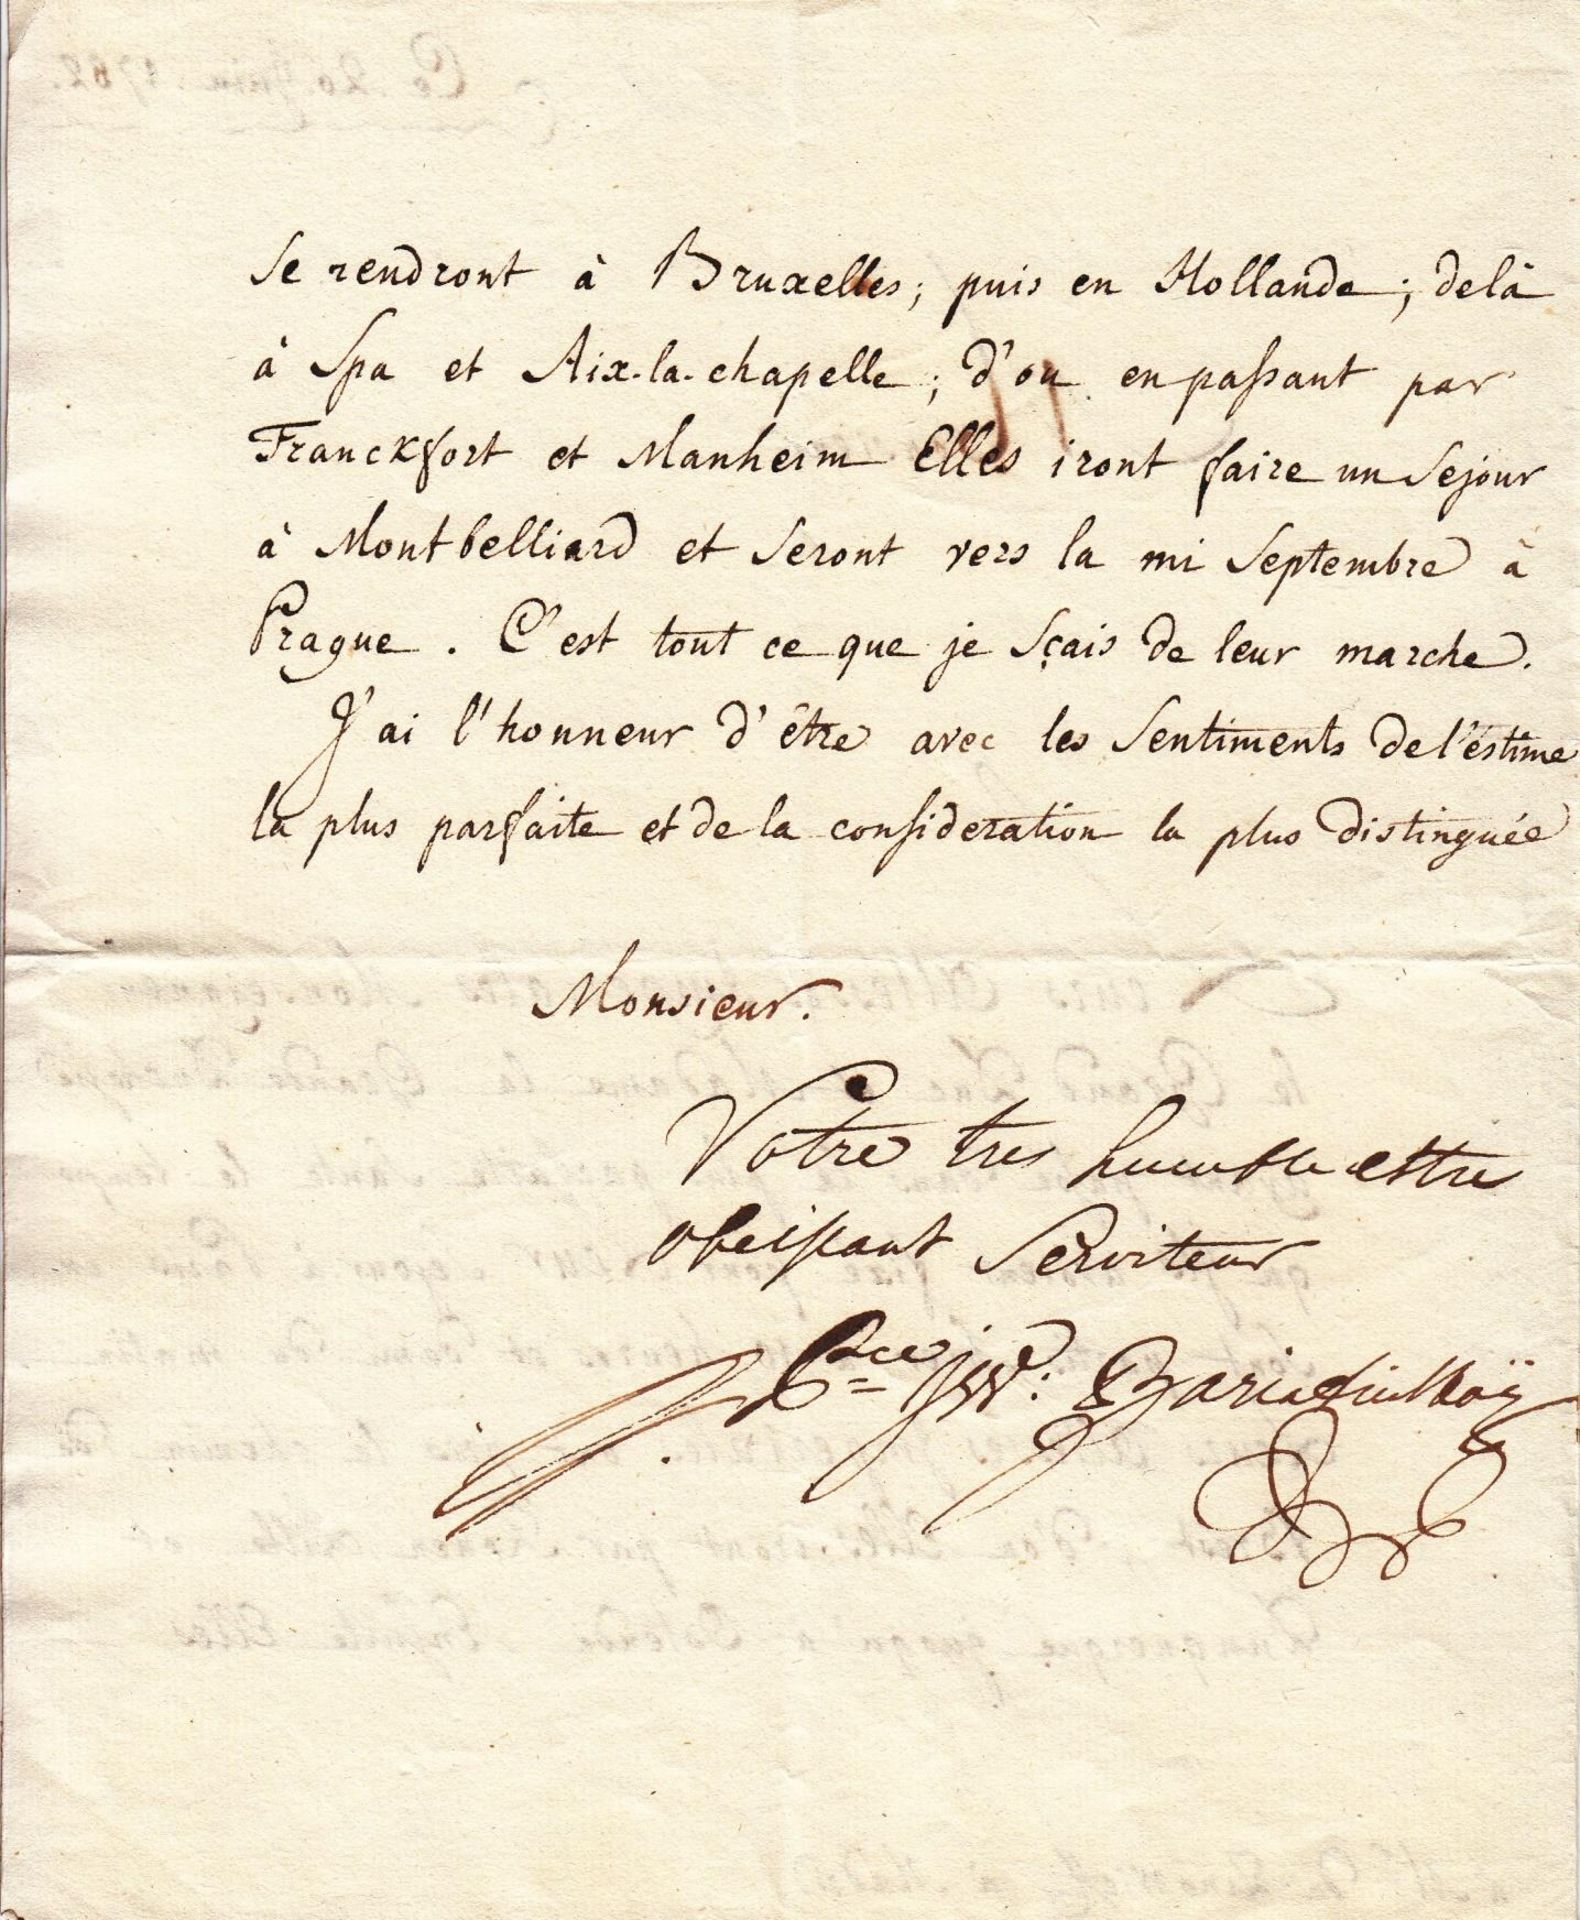 se rendront à Bruxelles; puis en Hollande; delà
à Spa et Aix-la-chapelle; d'ou en passant par
Franckfort et Manheim Elles iront faire un sejour
à Montbelliard et seront vers la mi septembre à
Prague. C'est tout ce que je sçais de leur marche.
J'ai l'honneur d'être avec les sentiments de l'estime
la plus parfaite et de la consideration la plus distinguée
Monsieur.
Votre tres humble et tres
obeissant Serviteur
Pce Bariatinskoÿ